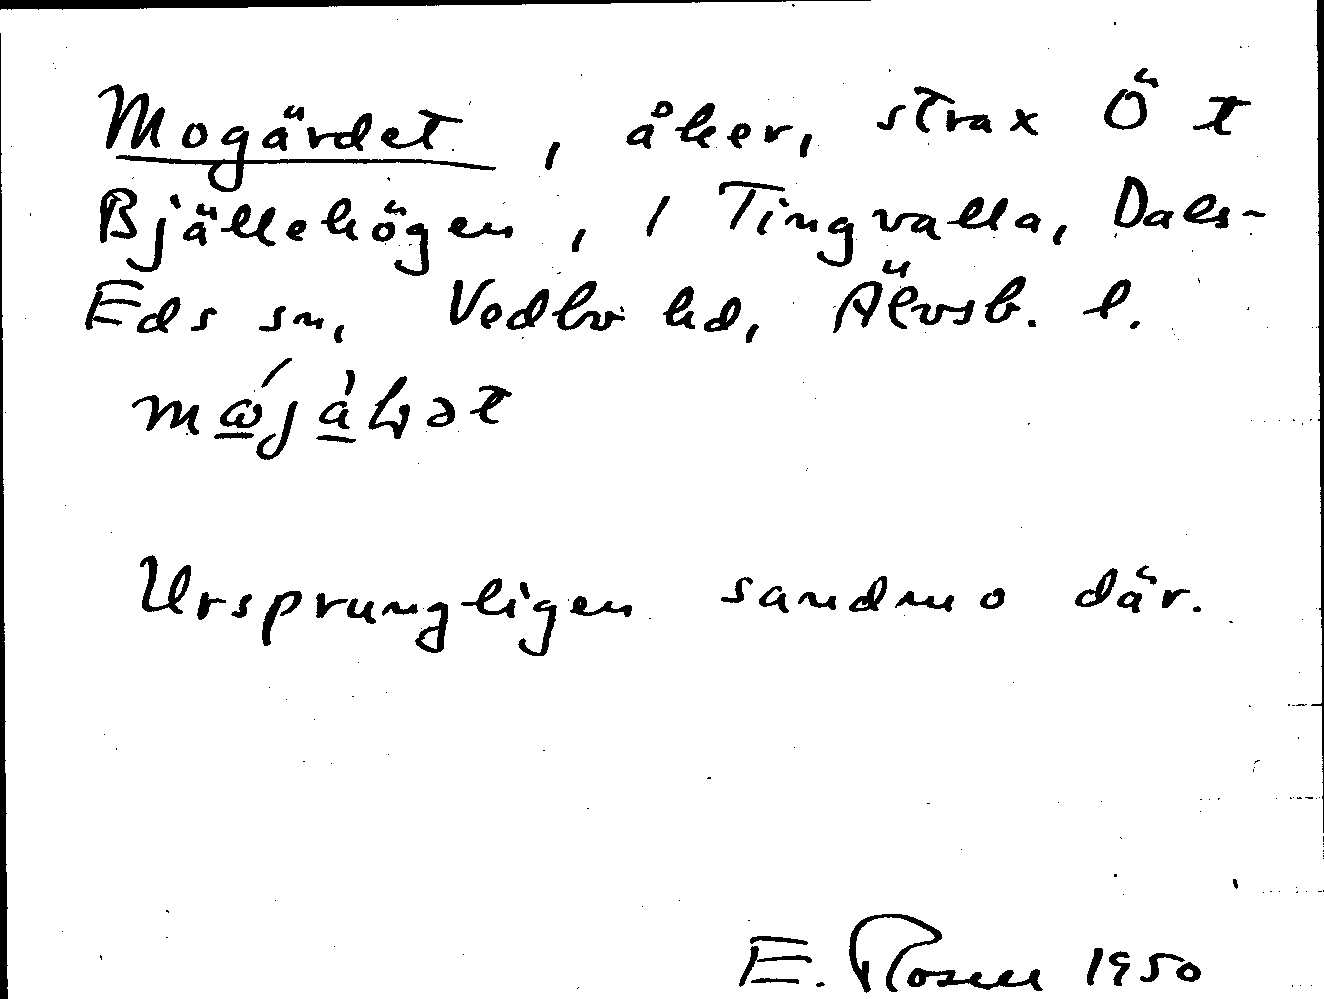 Mogärdet, åker, strax Ö t
Bjällehögen, 1 Tingvalla, Dals-
Eds sn, Vedbo hd, Älvsb. l.
Ursprungligen sandmo där.
E. Rosell 1950